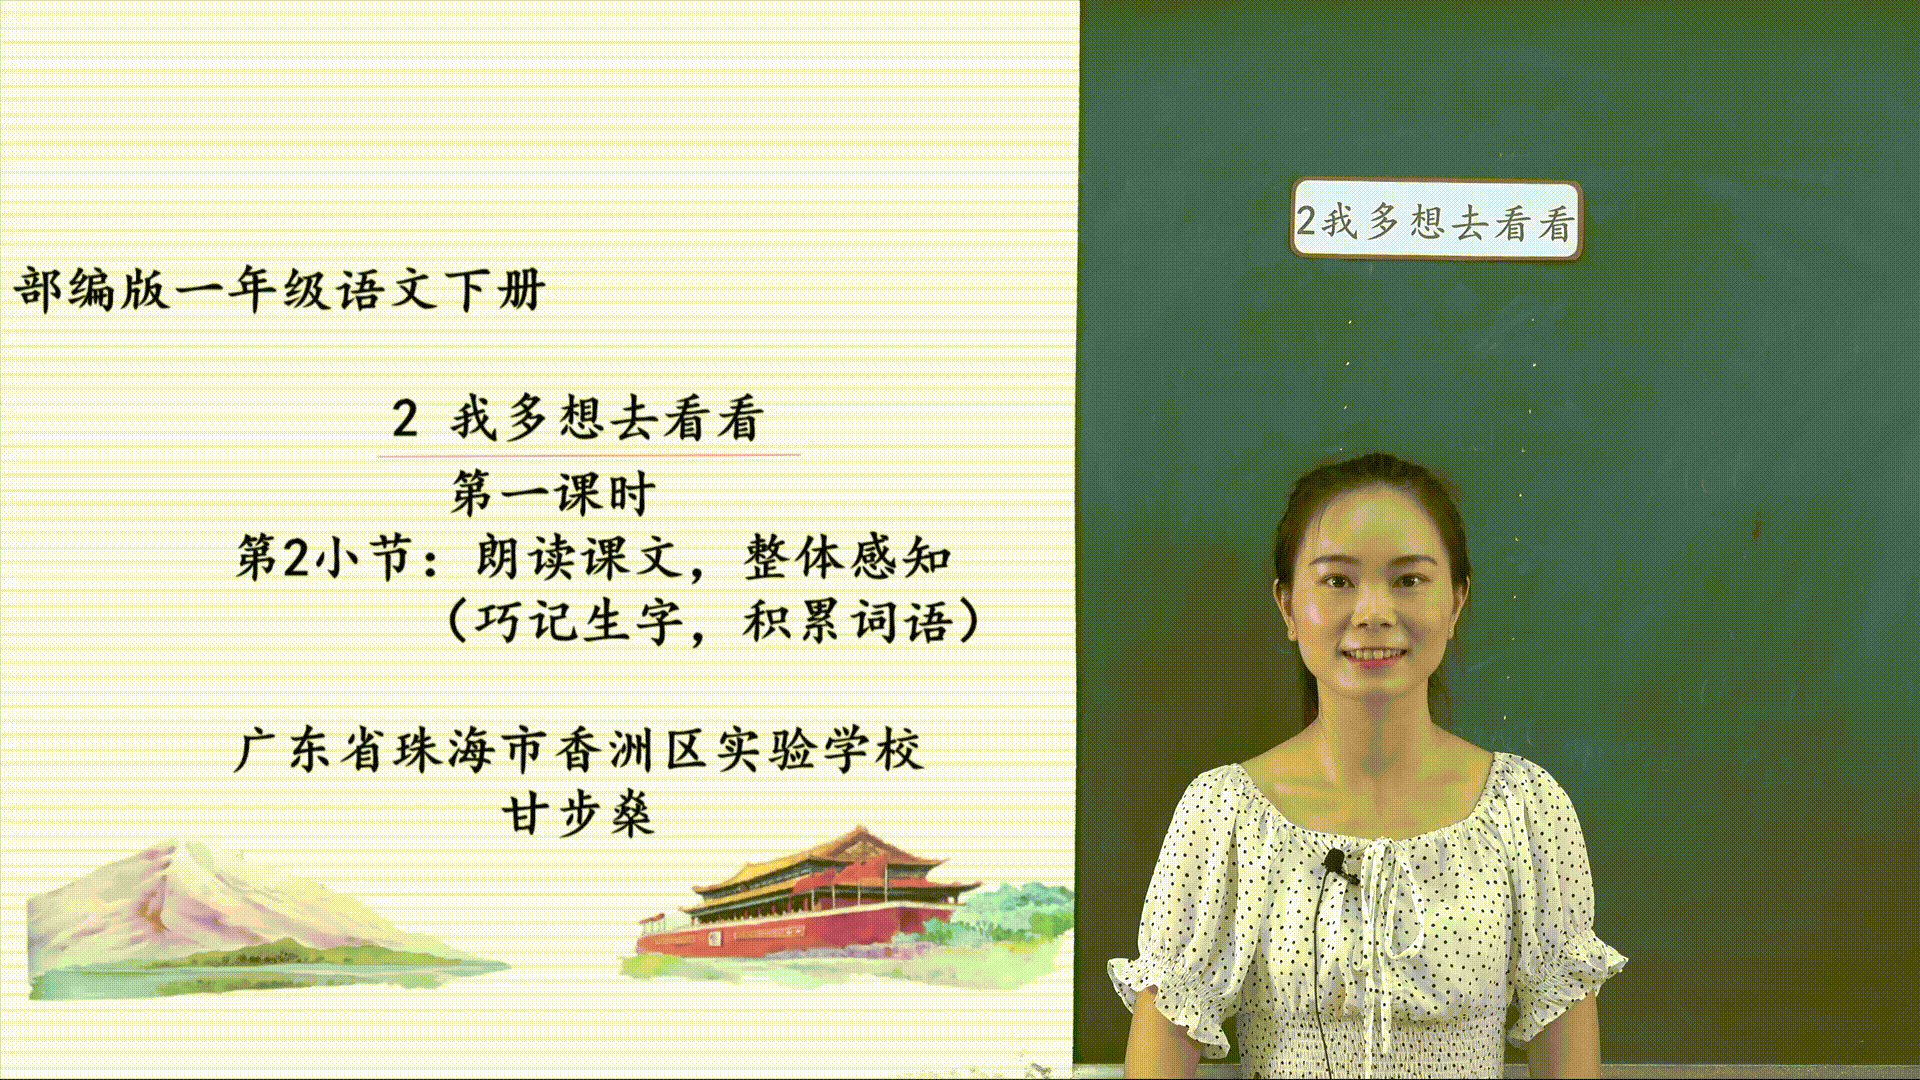 部编版一年级语文下册
2 我多想去看看
第一课时
第2小节：朗读课文，整体感知
（巧记生字，积累词语）
广东省珠海市香洲区实验学校
甘步燊
2我多想去看看